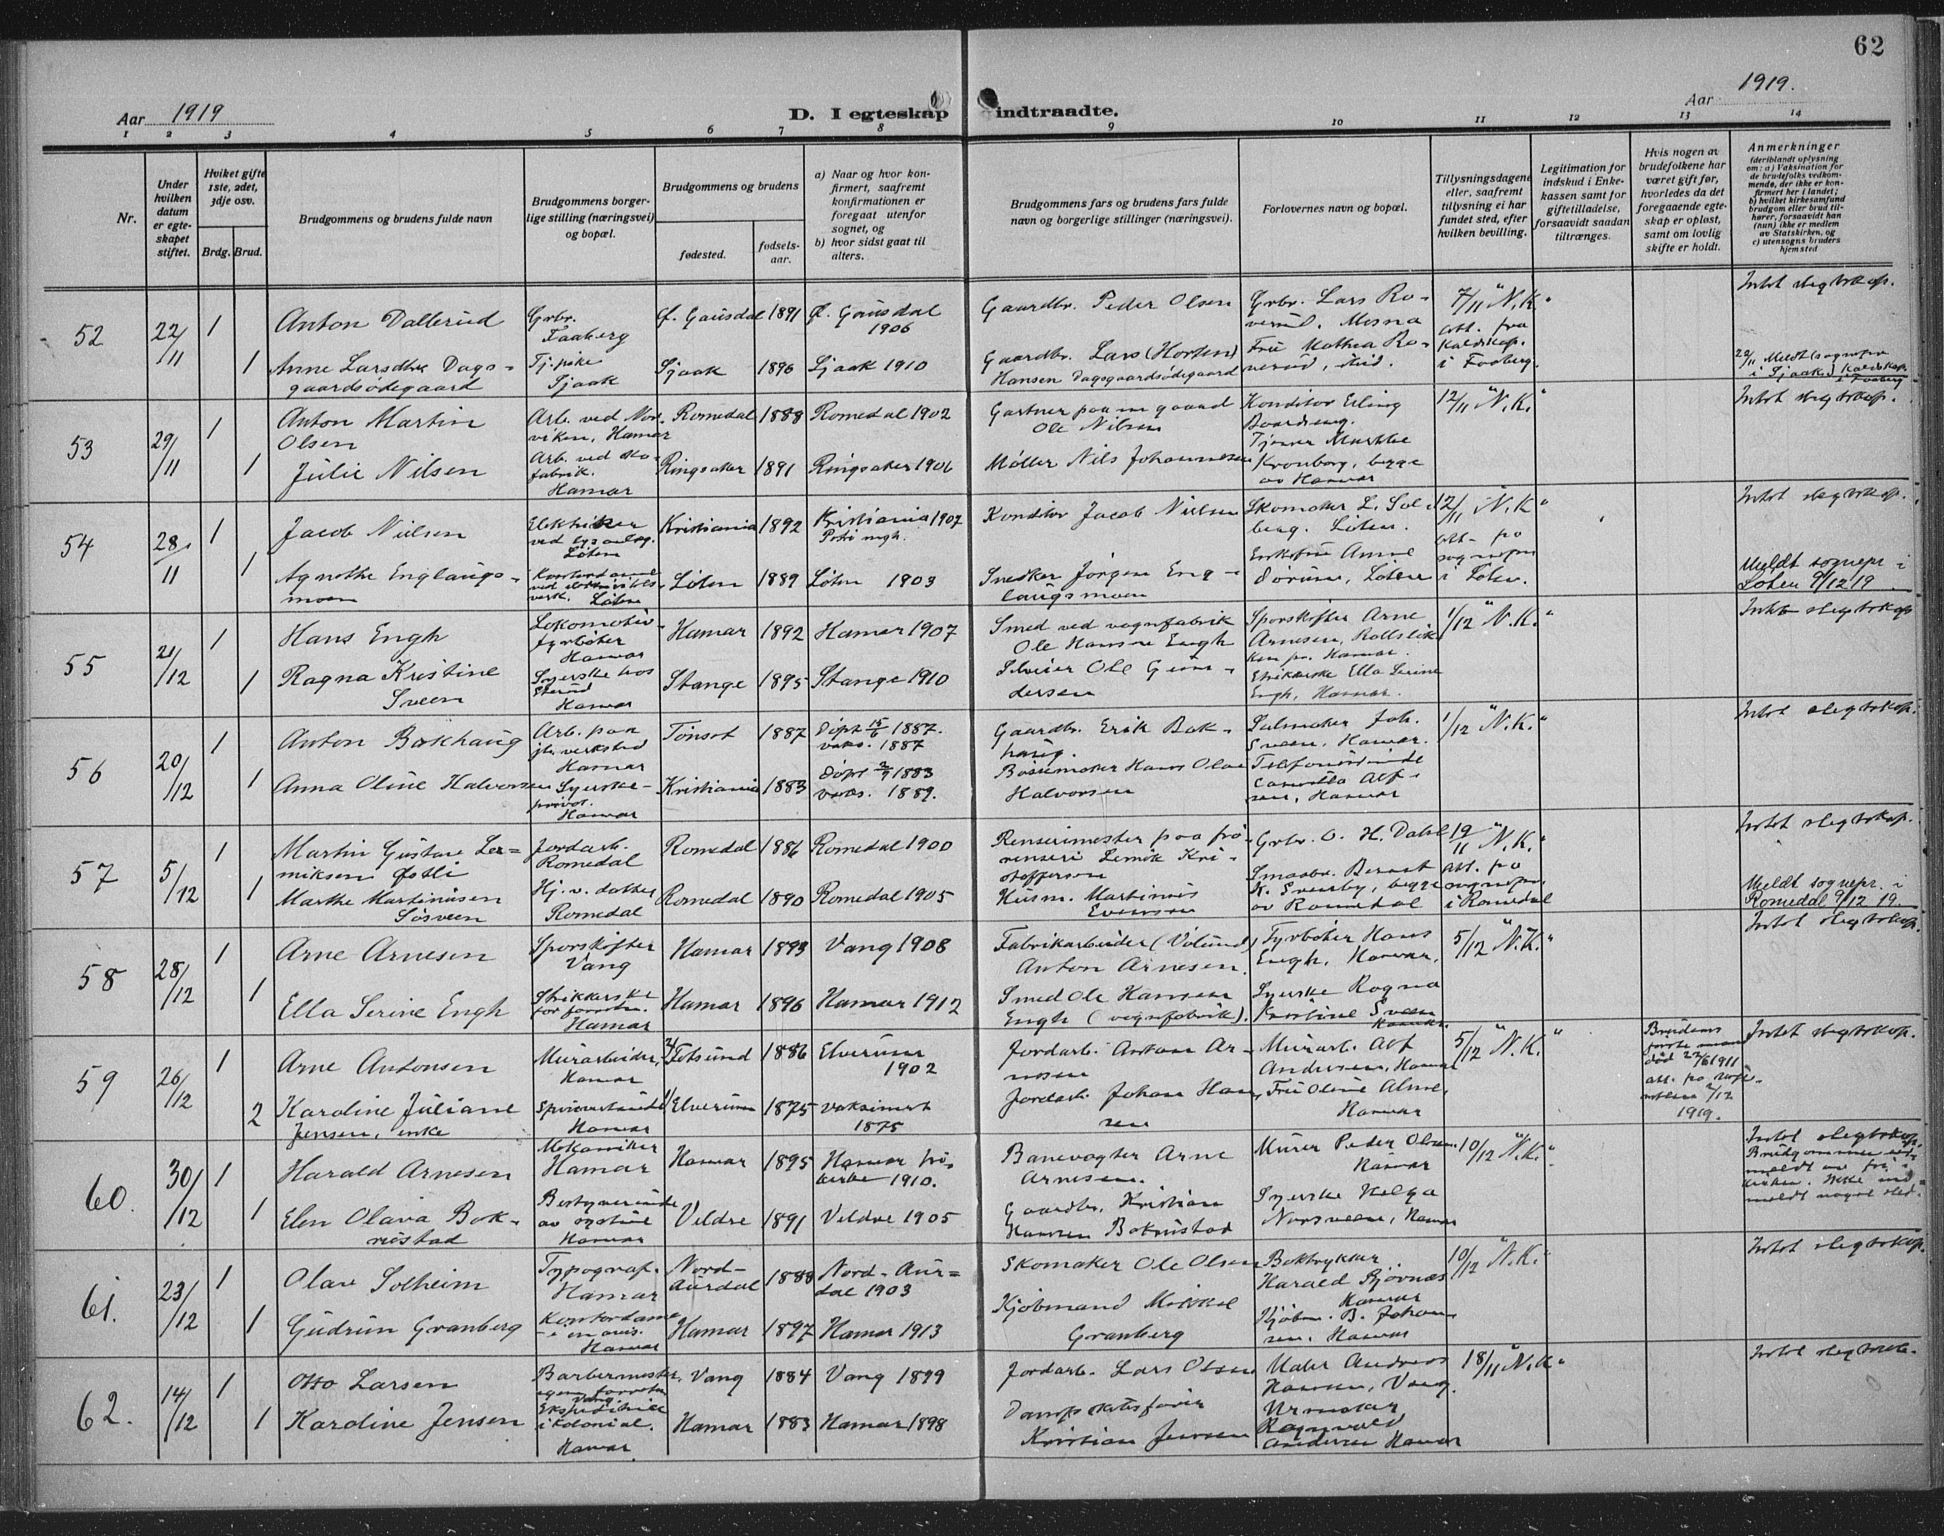 62
Aar 1919
D. I egteskap indtraadte.
Aar 1919.
1 2 3 4 5 6 7 8 9 10 11 12 13 14
Nr.
Under hvilken datum er egteskapet stiftet.
Hviket gifte 1ste, 2det, 3dje osv.
Brdg. Brud.
Brudgommens og brudens fulde navn
Brudgommens borgerlige stilling (næringsvei) og bopæl.
Brudgommens og brudens
fødested.
fødselsaar.
a) Naar og hvor konfirmert, saafremt konfirmationen er foregaat utenfor sognet, og
b) hvor sidst gaat til alters.
Brudgommens fars og brudens fars fulde navn og borgerlige stillinger (næringsvei).
Forlovernes navn og bopæl.
Tillysningsdagene eller, saafremt tillysning ei har fundet sted, efter hvilken bevilling.
Legitimation for indskud i Enkekassen samt for giftetilladelse, forsaavidt saadan tiltrænges.
Hvis nogen av brudefolkene har været gift før, hvorledes da det foregaaende egteskap er opløst, samt om lovlig skifte er holdt.
Anmerkninger
(deriblandt oplysning om: a) Vaksination for de brudefolks vedkommende, der ikke er konfirmert her i landet; b) hvilket kirkesamfund brudgom eller brud tilhører, forsaavidt han (hun) ikke er medlem av Statskirken, og c) utensogns bruders hjemsted
52 22/11 1 Anton Dallerud Grbr. Faaberg Ø. Gausdal 1891 Ø. Gausdal 1906 Gaardbr. Peder Olsen Grbr. Lars Roverud, Mesna 7/11 "N.K." Intet slegtskap.
1 Anne Larsdtr Dagsgaardsødegaard Tj.pike Sjaak Sjaak 1896 Sjaak 1910 Gaardbr. Lars (Horten) Hansen Dagsgaardsødegaard Fru Mathea Roverud, ibid. att. fra i Faaberg.
53 29/11 1 Anton Martin Olsen Arb. ved Norviken, Hamar Romedal 1888 Romedal 1902 Gartner paa m gaard Ole Nilsen Konditor Erling 12/11 "N.K." Intet slegtskap.
1 Julie Nilsen Arb. ved fabrik. Hamar Ringsaker 1891 Ringsaker 1906 Møller Nils Johannesen Kronborg, begge av Hamar
54 28/11 1 Jacob Nielsen Elektriker ved lysanlæg. Løten Kristiania 1892 Kristiania 1907 Petri mgh. Konditor Jacob Nielsen Skomaker L. Solberg. Løten. 12/11 "N.K" Intet slegtskap.
1 Agnethe Englaugsmoen Kontordame Løten Løten 1889 Løten 1903 Snedker Jørgen Englaugsmoen Enkefru Anne Sørum, Løten att. fra sognepr. i Løten. Meldt sognepr. i Løten 9/12 19
55 21/12 1 Hans Engh Lokomotivfyrbøter Hamar Hamar 1892 Hamar 1907 Smed ved vognfabrik Ole Hansen Engh Sporskifter Arne Arnesen, Hamar. 1/12 "N.K." Intet slegtskap
1 Ragna Kristine Sveen Syerske hos Hamar Stange 1895 Stange 1910 Ole Gundersen Strikkerske Ella Serine Engh, Hamar.
56 20/12 1 Anton Bakhaug Arb. paa jb. verksted Hamar Tønset 1887 Døpt 15/6 1887. vaks. 1887 Gaardbr. Erik Bakhaug. Salmaker Joh. Sveen, Hamar. 1/12 "N.K." Intet slegtskap.
1 Anna Oline Halvorsen Syerske privat. Hamar Kristiania 1883 Døpt 2/9 1883 vaks. 1889. Bøssemaker Hans Olav Halvorsen Telefonistinde Camilla Alfsen, Hamar
57 5/12 1 Martin Gustav Lemiksen Østli Jordarb. Romedal Romedal 1886 Romedal 1900 Rensemester paa frørenseri Lemik Kristofferson Grbr. O. H. Dahl 19/11 "N.K." Intet slegtskap.
1 Marthe Martinusen Løsveen Hj. v. datter Romedal Romedal 1890 Romedal 1905 Husm. Martinus Evensen Smaabr. Bernt K. Svenby, begge av Romedal att. fra sognepr. i Romedal Meldt sognepr. i Romedal 9/12 19.
58 28/12 1 Arne Arnesen Sporskifter Vang Hamar 1893 Vang 1908 Fabrikarbeider (Vølund) Anton Arnesen. Fyrbøter Hans Engh, Hamar. 5/12 "N.K." Intet slegtskap.
1 Ella Serine Engh Strikkerske for forretn. Hamar Hamar 1896 Hamar 1912 Smed Ole Hansen Engh (vognfabrik). Syerske Ragna Kristine Sveen Hamar.
59 26/12 1 Arne Antonsen Murarbeider, Hamar Fetsund 1886 Elverum 1902 Jordarb. Anton Arnesen Murarb. Alf Andersen, Hamar 5/12 "N.K." Brudens første mand død 22/6 1911 att. fra 2/12 1919. Intet slegtskap.
2 Karoline Juliane Jensen, enke Hamar Elverum 1875 vaksinert 1875 Jordarb. Johan Hansen Fru Oline Alme, Hamar
60. 30/12 1 Harald Arnesen Mekaniker Hamar Hamar 1895 Hamar frikirke 1910. Banevogter Arne Arnesen. Murer Peder Olsen. Hamar 10/12 "N.K." Intet slegtskap. Brudgommen utmeldt av frikirken. Ikke indmeldt noget sted.
1 Elen Olava Bokrustad Bestyrerinde av systue Hamar Veldre 1891 Veldre 1905 Gaardbr. Kristian Hansen Bokrustad Syerske Helga Norsveen, Hamar
61. 23/12 1 Olav Solheim Typograf. Hamar Nord-Aurdal 1888 Nord-Aurdal 1903 Skomaker Ole Olsen Boktrykker Harald Bjørnæs Hamar 10/12 "N.K." Intet slegtskap.
1 Gudrun Granberg Kontordame i en avis. Hamar Hamar 1897 Hamar 1913 Kjøbmand Mikkel Granberg Kjøbm. B. Johansen. Hamar
62. 14/12 1 Otto Larsen Barbermester, egen forretn. Vang Vang 1884 Vang 1899 Jordarb. Lars Olsen Maler Andreas Hansen, Vang. 18/11 "N.K." Intet slegtsk.
1 Karoline Jensen Ekspeditrice i kolonial. Hamar Hamar 1883 Hamar 1898 Dampskibsfører Kristian Jensen Urmaker Ragnvald Andersen Hamar